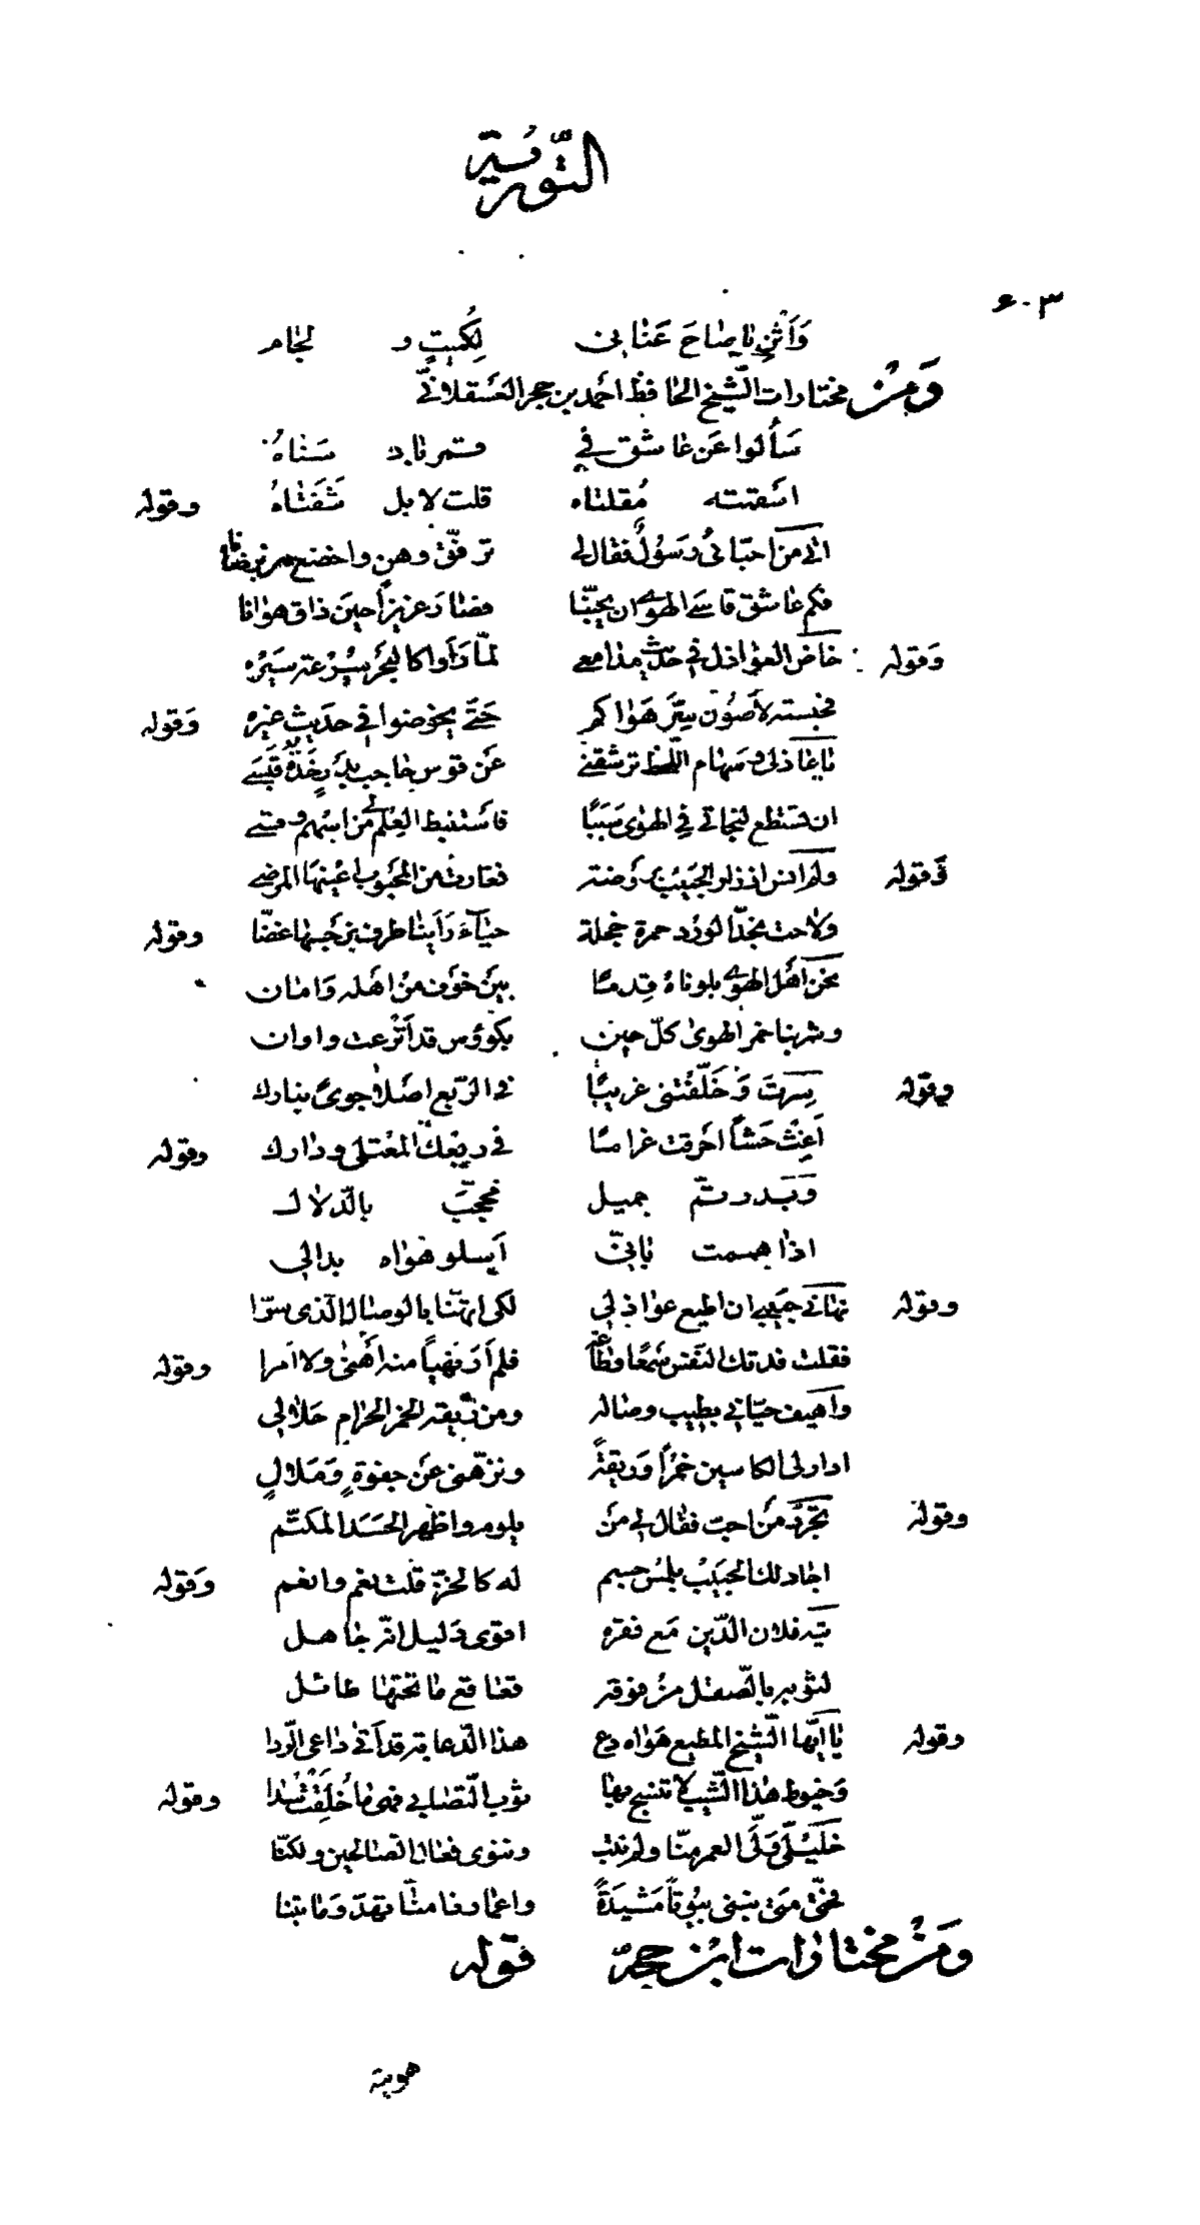 التورية
٤٠٣
وَاثنِ يا صاحَ عَنا بن لِكُميتٍ و لجام
وَمن مختارات الشيخ الحافظ احمد بن حجر العسقلاني
سَألوا عَن عاشق في قمر باد سَناهُ
اسقمته مُقلتاه قلت لا بل شَفَتاهُ وقوله
اتى من احبّائي رَسُولٌ فقال لي ترفّق وهن واخضع
فكم عاشق قاسى الهوى ان يحبنا فصار عزيزاً حين ذاق هوانا
وَقوله خاض العواذل في حديث مدامعي لمّا رَأوا كالبحر سُرعة سيره
فحبسته لأصُون سرَّ هَواكم حَتى يخوضوا في حديث غيره وَقوله
يا عاذلي وسهام اللحظ ترشقني عَن قوس حاجب
ان تستطع لنجاتي في الهوى سَبَبًا فاستنبط العِلم من اسهم وقسي
وقوله ولم انس اذ زار الحبيب روضة فغارت من المحبوب اعينها المرضى
ولاحت بخدّ الورد حمرة خجلة حياءً رَأينا طرف نرجسها غضّا وقوله
نحن اهل الهوى بلوناه قدما بين خوف من اهله وَامان
وشربنا خمر الهوى كلّ حين بكوؤس قد أترعت واوان
وقوله سرتَ وَخَلّفتني غريبًا في الربع اصلا جوىً بنارك
أغِث حَشاً احرقت غراما في ربعك المعتلى ودارك وقوله
وَبَدر تمّ جميل محجبّ بالدّلال
اذا هممت باني أيسلو هواه بدا لي
وقوله نهاني حبيبي ان اطيع عواذلي لكي ارتنا بالوصال الذي سرّا
فقلت فدتك النفس سَمعًا وطاعة فلم أرَ نهياً منه أهنى ولا امرا وقوله
واهيف حيّاني بطيب وصاله ومن ريقه الخمر الحرام حلا لي
ادار لي الكاسين خمراً وَريقةً ونزّهني عن جفوةٍ وَمَلالِ
وقوله تجرّدَ مَن احب فقال لي مَن يلوم واظهر الحَسَد المكتّم
اجاد لك الحبيب بلمس جسم له كالخزّ قلت نعم وانعم وَقوله
تيه فلان الدّين مَع فقره اقوى دَليل انه جاهل
لثوبه بالصقل من فوقه قعاقع ما تحتها طائل
وقوله يا أيّها الشيخ المطيع هَواه دع هذا الدعابة قد أتى داعي الردا
وَخيوط هذا الشيب لا تنسج بها ثوب التصابي فهي ما خُلِقت سُدا وقوله
خَليليّ وَلّى العمر منّا ولم نتب وننوى فعال الصالحين ولكنّا
فحتى متى نبنى بيُوتاً مَشيدَةً واعمارنا منّا تهدّ وَما تبنا
وَمن مختارات ابن حجر قوله
هويته